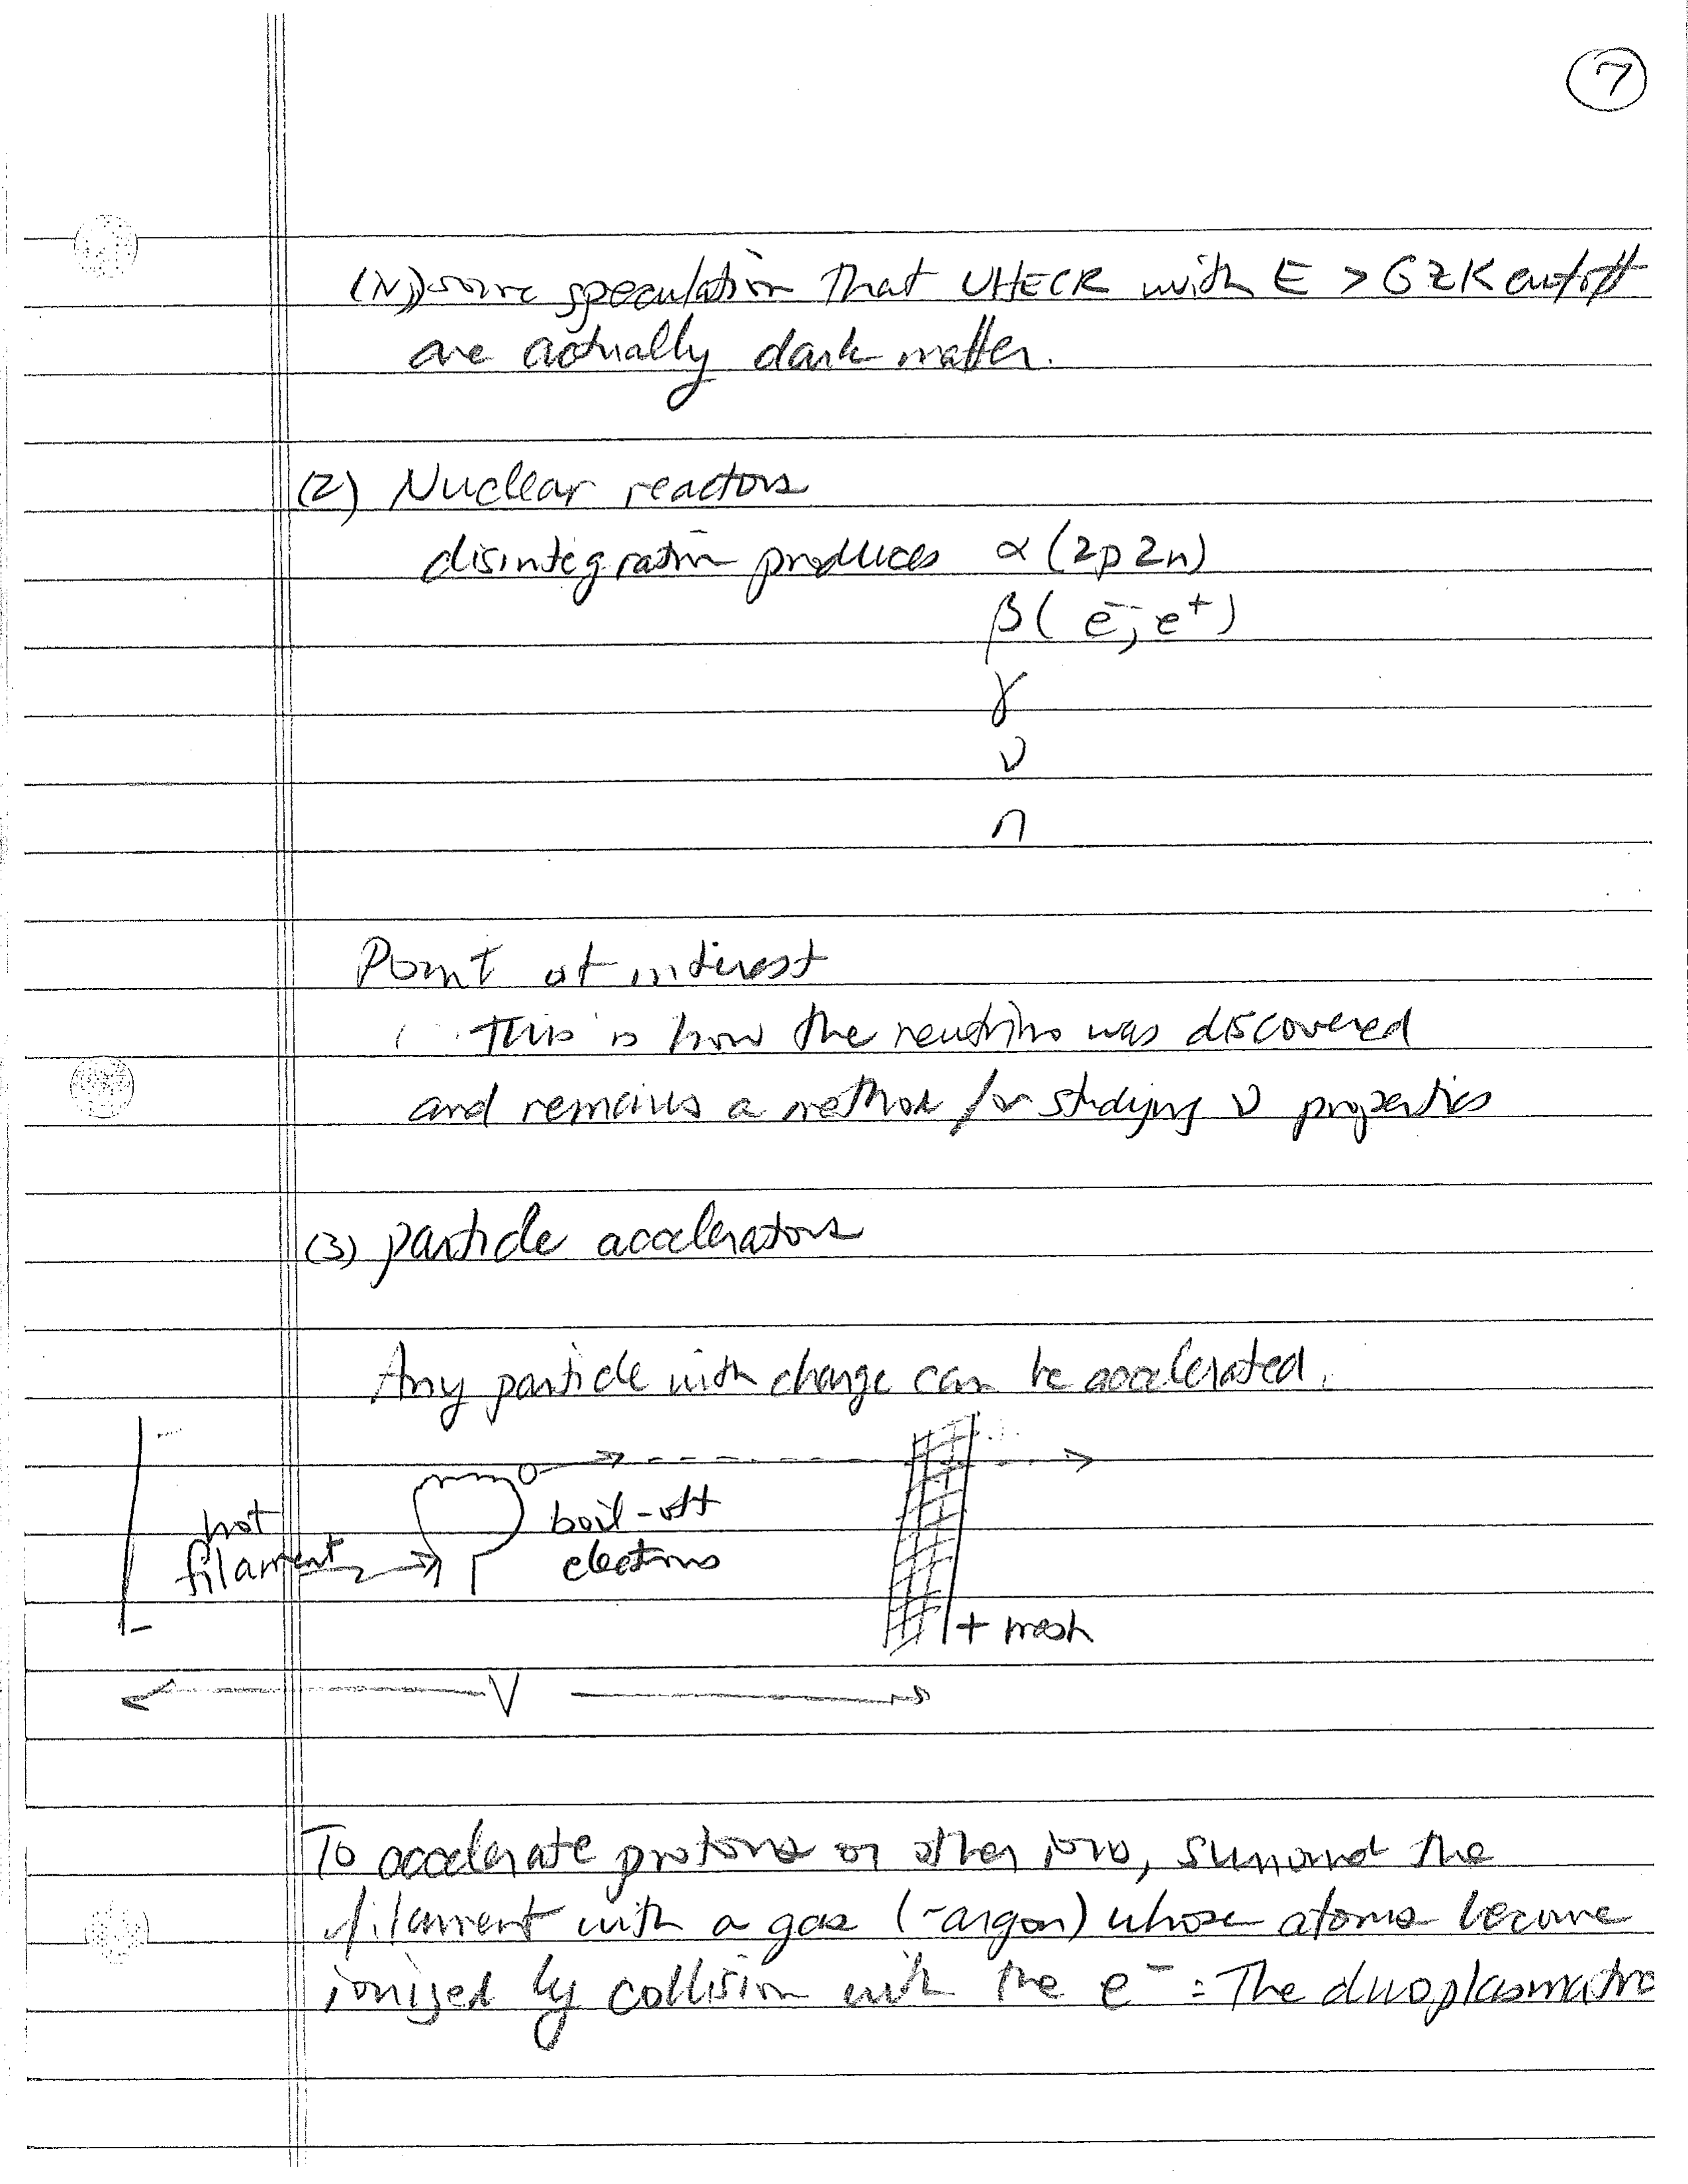 7
(iv) some speculation that UHECR with E > GZK cutoff
are actually dark matter.
(2) Nuclear reactors
disintegration produces α (2p2n)
β ( e⁻, e⁺)
γ
ν
n
Point of interest
This is how the neutrino was discovered
and remains a method for studying ν properties
(3) particle accelerators
Any particle with charge can be accelerated.
hot
filament
boil-off
electrons
-
+ mesh
V
To accelerate protons or other ions, surround the
filament with a gas (~argon) whose atoms become
ionized by collision with the e⁻ : The duoplasmatro